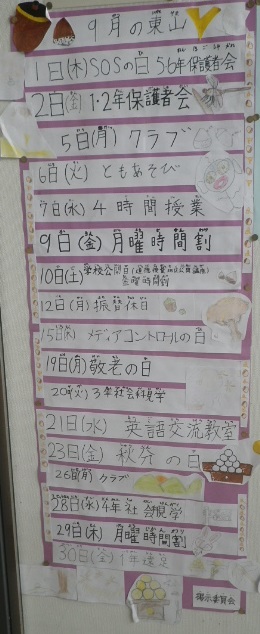 9月の東山
1日(木)SOSの日 5・6年保護者会
2日(金)1・2年保護者会
5日(月)クラブ
6日(火)ともあそび
7日(水)4時間授業
9日(金)月曜時間割
10日(土)学校公開日
金曜時間割
12日(月)振替休日
15日(木)メディアコントロールの日
19日(月)敬老の日
20日(火)3年社会科見学
21日(水)英語交流教室
23日(金)秋分の日
26日(月)クラブ
28日(水)4年社会科見学
29日(木)月曜時間割
30日(金)1年遠足
掲示委員会